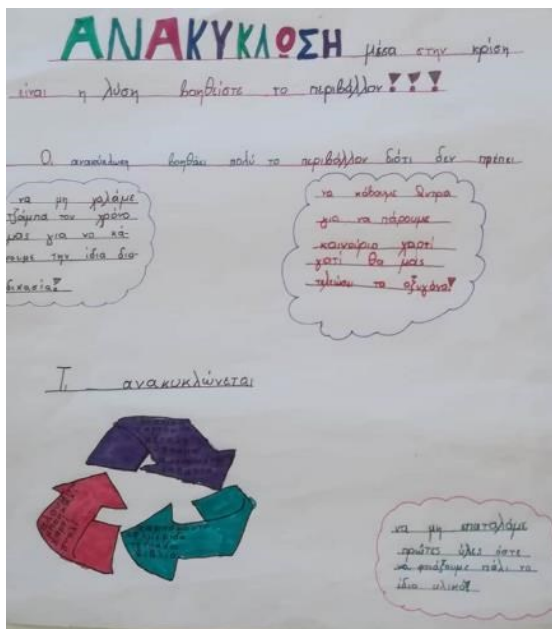 ΑΝΑΚΥΚΛΩΣΗ μέσα στην κρίση
είναι η λύση βοηθείστε το περιβάλλον!!!
Ο, ανακύκλωση βοηθάει πολύ το περιβάλλον διότι δεν πρέπει
να μη χαλάμε
τζάμπα τον χρόνο
μας για να κά-
νουμε την ίδια δια-
δικασία!
να κόβουμε δντρα
για να πάρουμε
καινούριο χαρτί
γατί θα μας
τελειώσει το οξυγόνο!
Τι ανακυκλώνεται
να μη σπαταλάμε
πρώτες ύλες ώστε
να φτιάξουμε πάλι το
ίδιο υλικό!